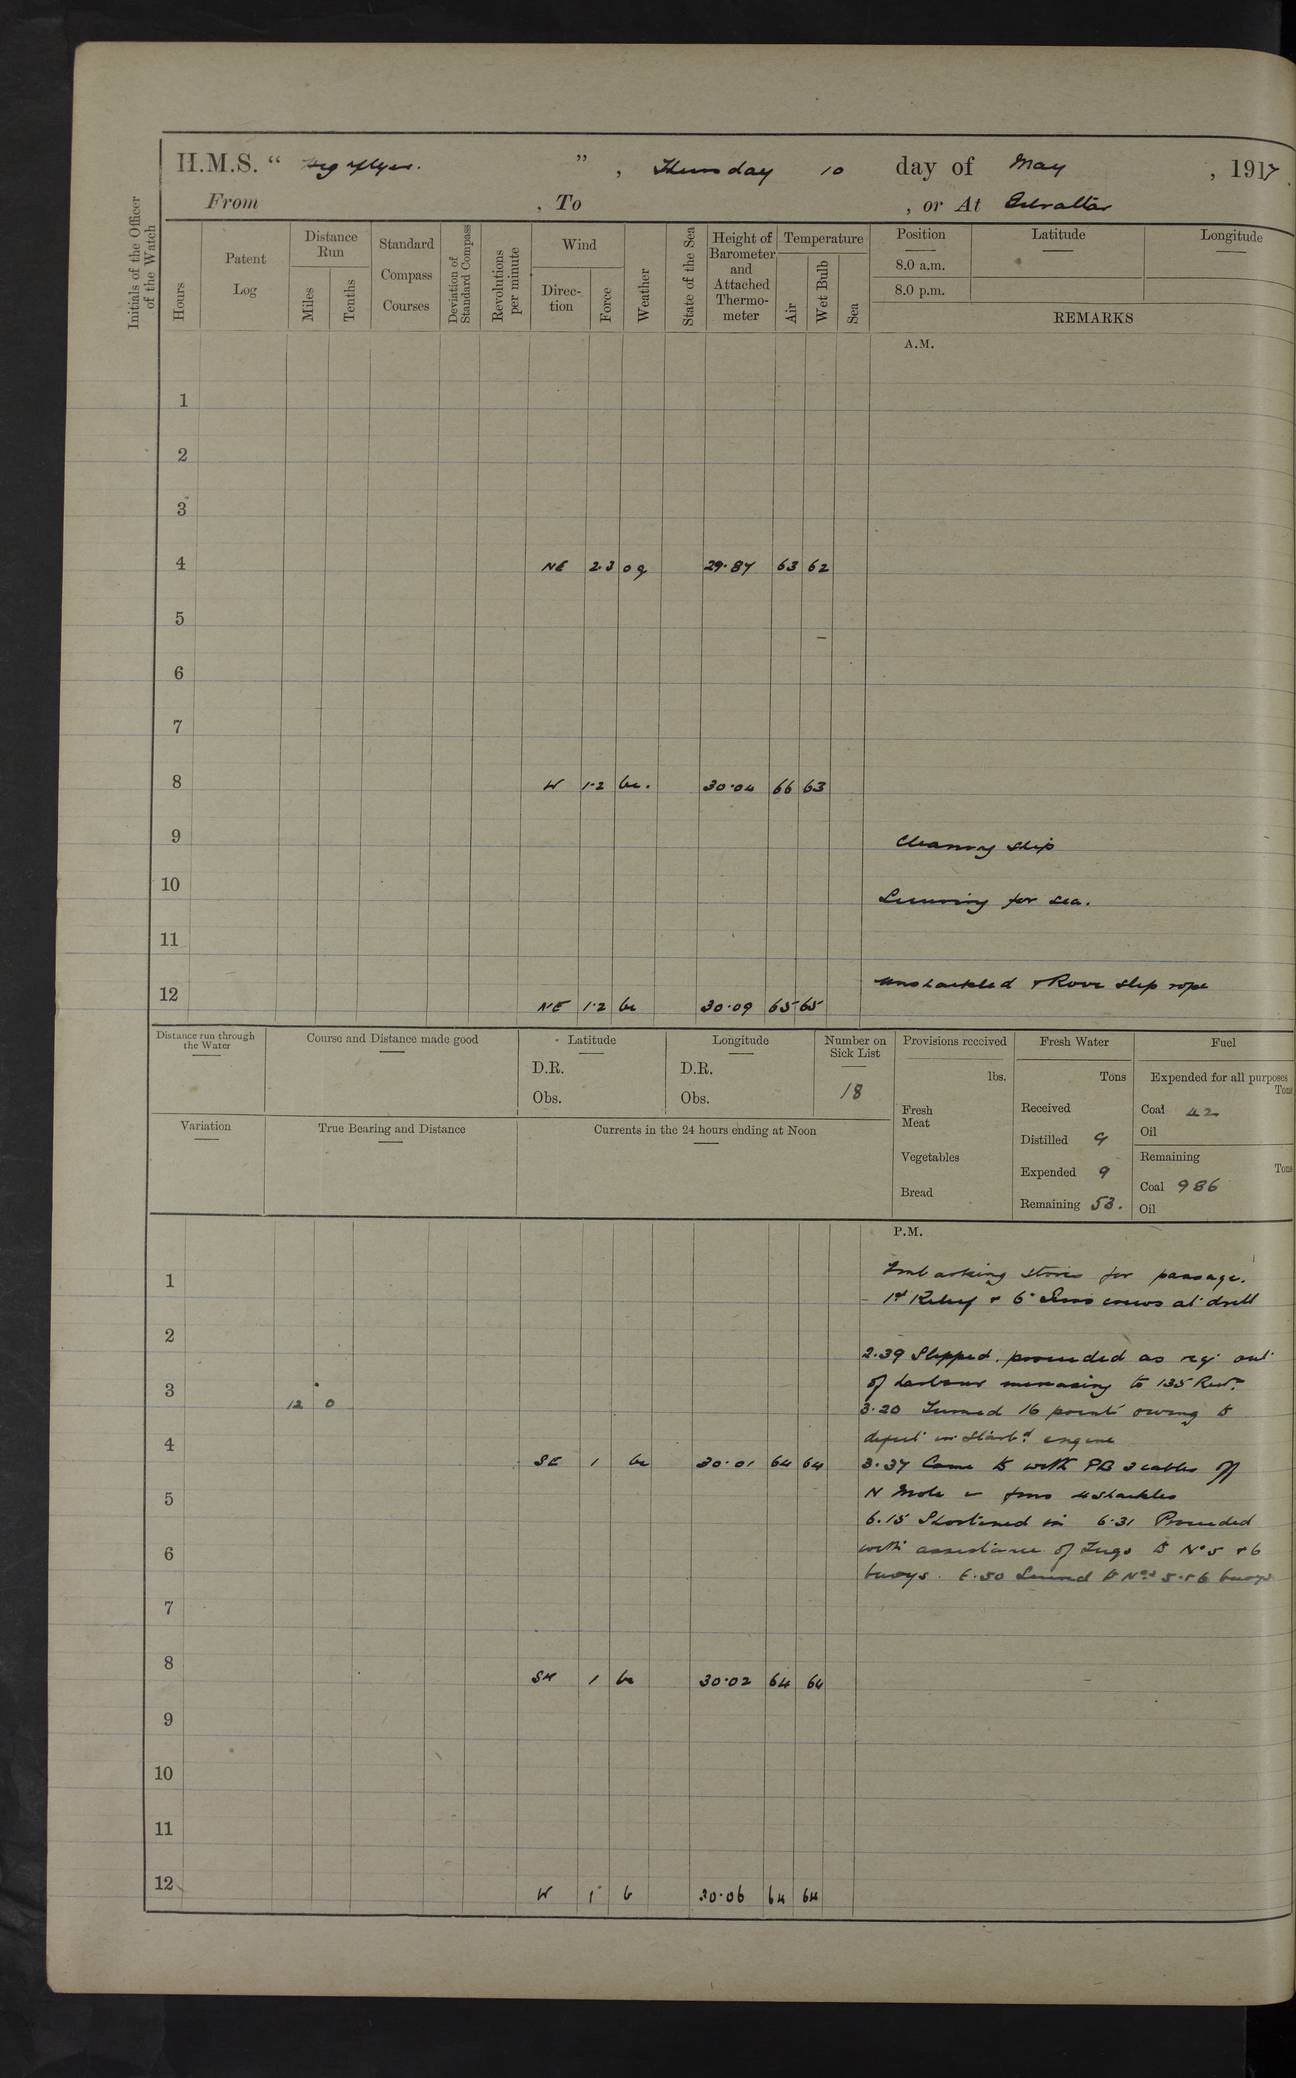 H.M.S. “ Highflyer. ”, Thursday 10 day of May, 1917.
From , To , or At Gibraltar
Initials of the Officer of the Watch
Hours
Patent Log
Distance Run
Miles
Tenths
Standard Compass Courses
Deviation of Standard Compass
Revolutions per minute
Wind
Direction
Force
Weather
State of the Sea
Height of Barometer and Attached Thermometer
Temperature
Air
Wet Bulb
Sea
Position
Latitude
Longitude
8.0 a.m.
8.0 p.m.
REMARKS
A.M.
1
2
3
4 NE 2.3 og 29.87 63 62
5
6
7
8 W 1.2 bc. 30.04 66 63
9 Cleaning ship
10 Securing for sea.
11
12 NE 1.2 bc 30.09 65 65 Unshackled & Rove slip rope
Distance run through the Water
Course and Distance made good
Latitude
D.R.
Obs.
Longitude
D.R.
Obs.
Number on Sick List
18
Provisions received
lbs.
Fresh Meat
Vegetables
Bread
Fresh Water
Tons
Received
Distilled 9
Expended 9
Remaining 53.
Fuel
Expended for all purposes
Tons
Coal 42
Oil
Remaining
Tons
Coal 986
Oil
Variation
True Bearing and Distance
Currents in the 24 hours ending at Noon
P.M.
1 Embarking stores for passage.
1st Relief & 6" Guns crews at drill
2
2.39 Slipped. proceeded as req out
3 of harbour increasing to 135 Revs.
12 0 3.20 Turned 16 points owing to
4 defect in Starbd engine
SE 1 bc 30.01 64 64 3.37 Came to with PB 3 cables off
5 N Mole in fms 4 shackles
6.15 Shortened in 6.31 Proceeded
6 with assistance of Tugs to No 5 & 6
buoys. 6.50 Secured to Nos 5 & 6 buoys
7
8 SW 1 bc 30.02 64 64
9
10
11
12 W 1 b 30.06 64 64